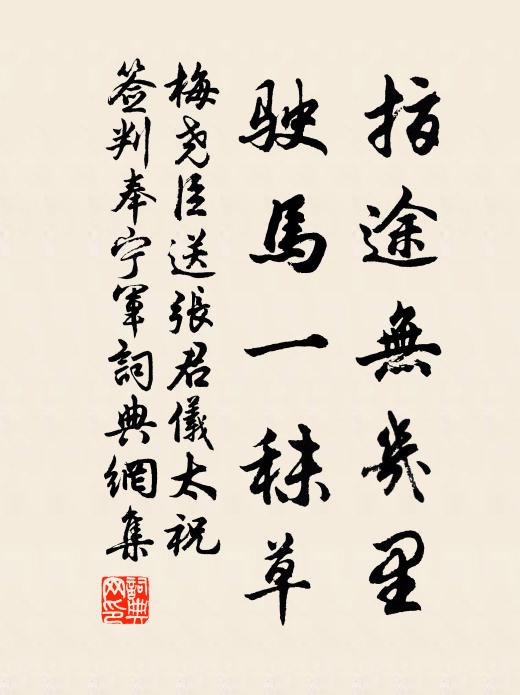 指途無幾里
駛馬一秣草
梅堯臣送張君儀太祝
签判奉宁軍詞典網集
詞典網印